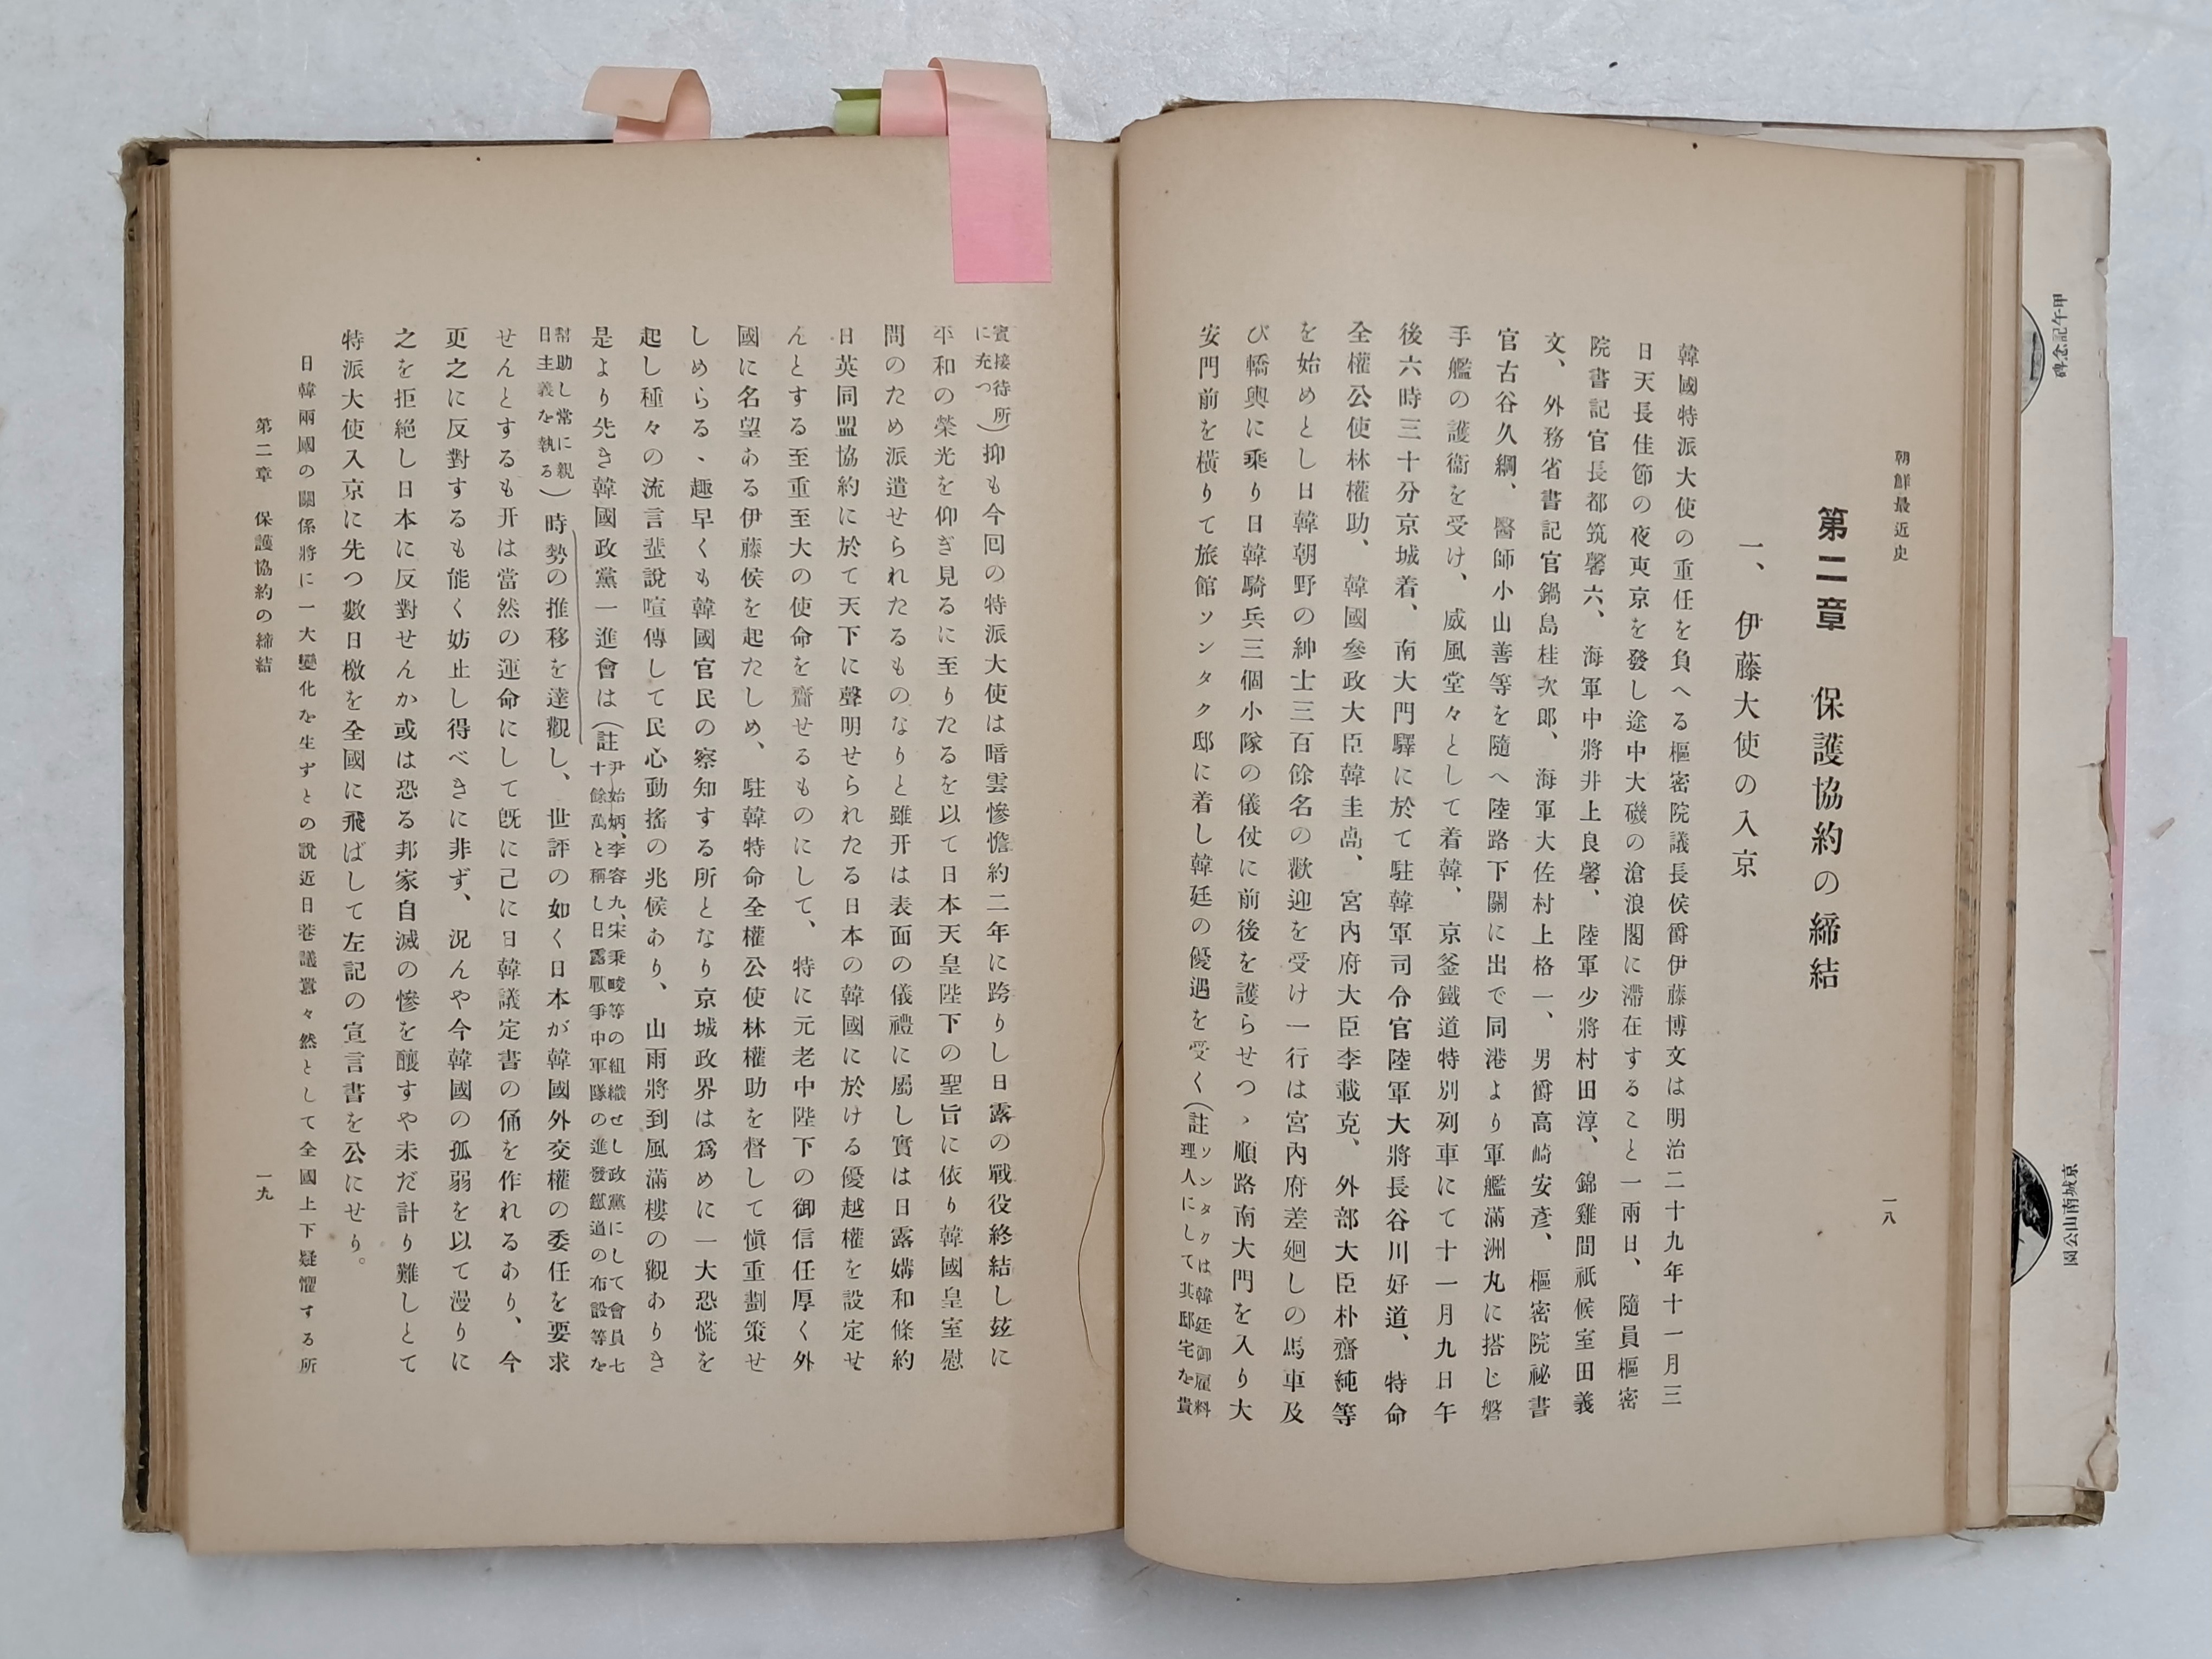 朝鮮最近史
一八
第二章　保護協約の締結
一、伊藤大使の入京
韓國特派大使の重任を負へる樞密院議長侯爵伊藤博文は明治二十九年十一月三
日天長佳節の夜東京を發し途中大磯の滄浪閣に滯在すること一兩日、隨員樞密
院書記官長都筑馨六、海軍中將井上良馨、陸軍少將村田淳、錦雞間祗候室田義
文、外務省書記官鍋島桂次郎、海軍大佐村上格一、男爵高崎安彥、樞密院祕書
官古谷久綱、醫師小山善等を隨へ陸路下關に出で同港より軍艦滿洲丸に搭じ磐
手艦の護衞を受け、威風堂々として着韓、京釜鐵道特別列車にて十一月九日午
後六時三十分京城着、南大門驛に於て駐韓軍司令官陸軍大將長谷川好道、特命
全權公使林權助、韓國參政大臣韓圭卨、宮內府大臣李載克、外部大臣朴齋純等
を始めとし日韓朝野の紳士三百餘名の歡迎を受け一行は宮內府差廻しの馬車及
び轎輿に乘り日韓騎兵三個小隊の儀仗に前後を護らせつゝ順路南大門を入り大
安門前を橫りて旅館ソンタク邸に着し韓廷の優遇を受く（註ソンタクは韓廷御雇料
理人にして其邸宅を貴
賓接待所
に充つ）抑も今回の特派大使は暗雲慘憺約二年に跨りし日露の戰役終結し玆に
平和の榮光を仰ぎ見るに至りたるを以て日本天皇陛下の聖旨に依り韓國皇室慰
問のため派遣せられたるものなりと雖开は表面の儀禮に屬し實は日露媾和條約
日英同盟協約に於て天下に聲明せられたる日本の韓國に於ける優越權を設定せ
んとする至重至大の使命を齎せるものにして、特に元老中陛下の御信任厚く外
國に名望ある伊藤侯を起たしめ、駐韓特命全權公使林權助を督して愼重劃策せ
しめらる、趣早くも韓國官民の察知する所となり京城政界は爲めに一大恐慌を
起し種々の流言蜚說喧傳して民心動搖の兆候あり、山雨將到風滿樓の觀ありき
是より先き韓國政黨一進會は（註尹始炳、李容九、宋秉畯等の組織せし政黨にして會員七
十餘萬と稱し日露戰爭中軍隊の進發鐵道の布設等を
幇助し常に親
日主義を執る）時勢の推移を達觀し、世評の如く日本が韓國外交權の委任を要求
せんとするも开は當然の運命にして旣に己に日韓議定書の俑を作れるあり、今
更之に反對するも能く妨止し得べきに非ず、況んや今韓國の孤弱を以て漫りに
之を拒絕し日本に反對せんか或は恐る邦家自滅の慘を釀すや未だ計り難しとて
特派大使入京に先つ數日檄を全國に飛ばして左記の宣言書を公にせり。
日韓兩國の關係將に一大變化を生ずとの說近日巷議囂々然として全國上下疑懼する所
第二章　保護協約の締結
一九
甲午記念碑
京城南山公園